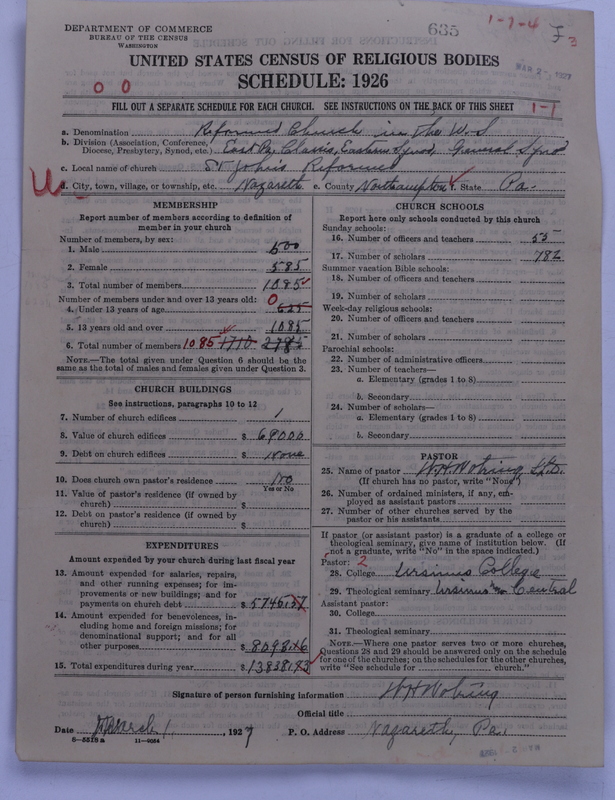 DEPARTMENT OF COMMERCE
BUREAU OF THE CENSUS
WASHINGTON
635
1-7-4
3
UNITED STATES CENSUS OF RELIGIOUS BODIES
SCHEDULE: 1926
0 0
FILL OUT A SEPARATE SCHEDULE FOR EACH CHURCH. SEE INSTRUCTIONS ON THE BACK OF THIS SHEET
1-1
a. Denomination Reformed Church in the U.S
b. Division (Association, Conference, Diocese, Presbytery, Synod, etc.) East Pa. Classis, Eastern Synod, General Synod
c. Local name of church St John's Reformed
d. City, town, village, or township, etc. Nazareth e. County Northampton f. State Pa.
MEMBERSHIP
Report number of members according to definition of
member in your church
Number of members, by sex:
1. Male 500
2. Female 585
3. Total number of members 1085
Number of members under and over 13 years old:
4. Under 13 years of age 0 625
5. 13 years old and over 1085
6. Total number of members 1085 1710
NOTE.—The total given under Question 6 should be the
same as the total of males and females given under Question 3.
CHURCH BUILDINGS
See instructions, paragraphs 10 to 12
7. Number of church edifices 1
8. Value of church edifices $ 69000
9. Debt on church edifices $ None
10. Does church own pastor's residence No
Yes or No
11. Value of pastor's residence (if owned by
church) $
12. Debt on pastor's residence (if owned by
church) $
EXPENDITURES
Amount expended by your church during last fiscal year
13. Amount expended for salaries, repairs,
and other running expenses; for im-
provements or new buildings; and for
payments on church debt $ 5746.37
14. Amount expended for benevolences, in-
cluding home and foreign missions; for
denominational support; and for all
other purposes $ 8092.46
15. Total expenditures during year $ 13838.83
CHURCH SCHOOLS
Report here only schools conducted by this church
Sunday schools:
16. Number of officers and teachers 55
17. Number of scholars 782
Summer vacation Bible schools:
18. Number of officers and teachers
19. Number of scholars
Week-day religious schools:
20. Number of officers and teachers
21. Number of scholars
Parochial schools:
22. Number of administrative officers
23. Number of teachers—
a. Elementary (grades 1 to 8)
b. Secondary
24. Number of scholars—
a. Elementary (grades 1 to 8)
b. Secondary
PASTOR
25. Name of pastor W.H. Wotring
(If church has no pastor, write "None")
26. Number of ordained ministers, if any, em-
ployed as assistant pastors
27. Number of other churches served by the
pastor or his assistants
If pastor (or assistant pastor) is a graduate of a college or
theological seminary, give name of institution below. (If
not a graduate, write "No" in the space indicated.)
Pastor: 2
28. College Ursinus College
29. Theological seminary Ursinus now Central
Assistant pastor:
30. College
31. Theological seminary
NOTE.—Where one pastor serves two or more churches,
Questions 28 and 29 should be answered only on the schedule
for one of the churches; on the schedules for the other churches,
write "See schedule for church."
Signature of person furnishing information W H Wotring
Official title
Date March 1, 1927 P. O. Address Nazareth, Pa.
6—5518a 11—9064